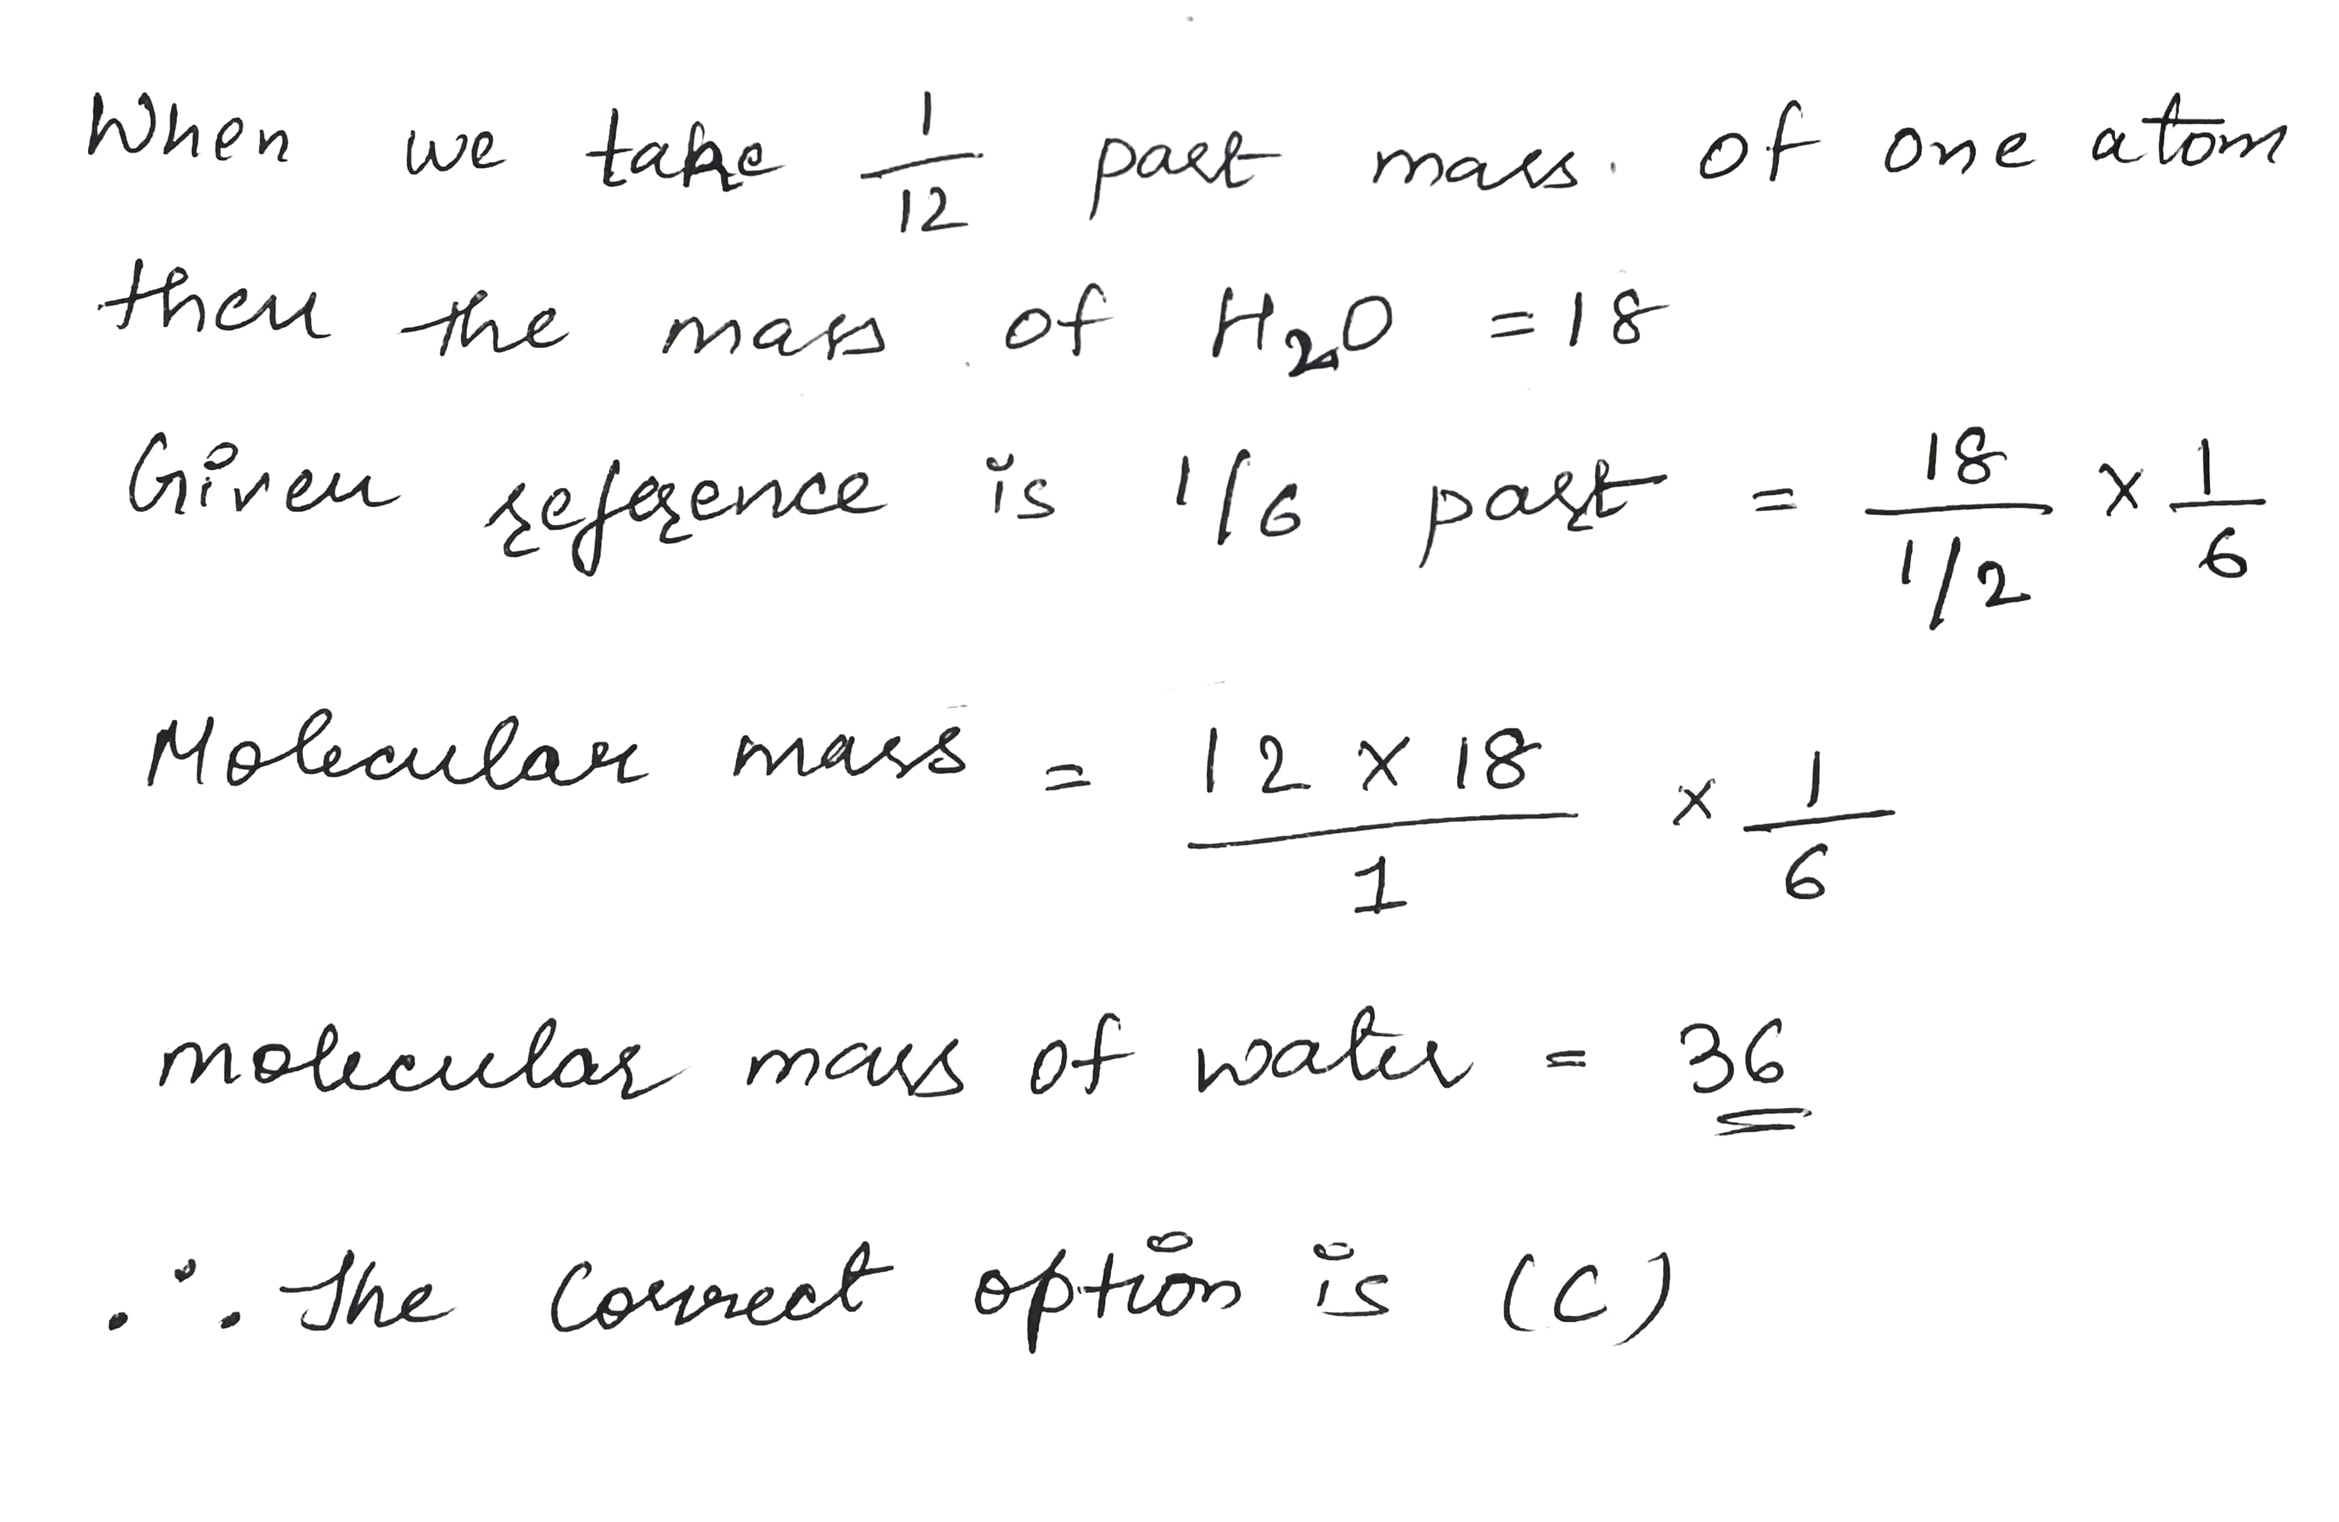 When we take 1/12 part mass. of one atom
then the mass of H₂O = 18
Given reference is 1/6 part = 18/(1/2) × 1/6
Molecular mass = (12 × 18)/1 × 1/6
molecular mass of water = 36
∴ The Correct option is (C)